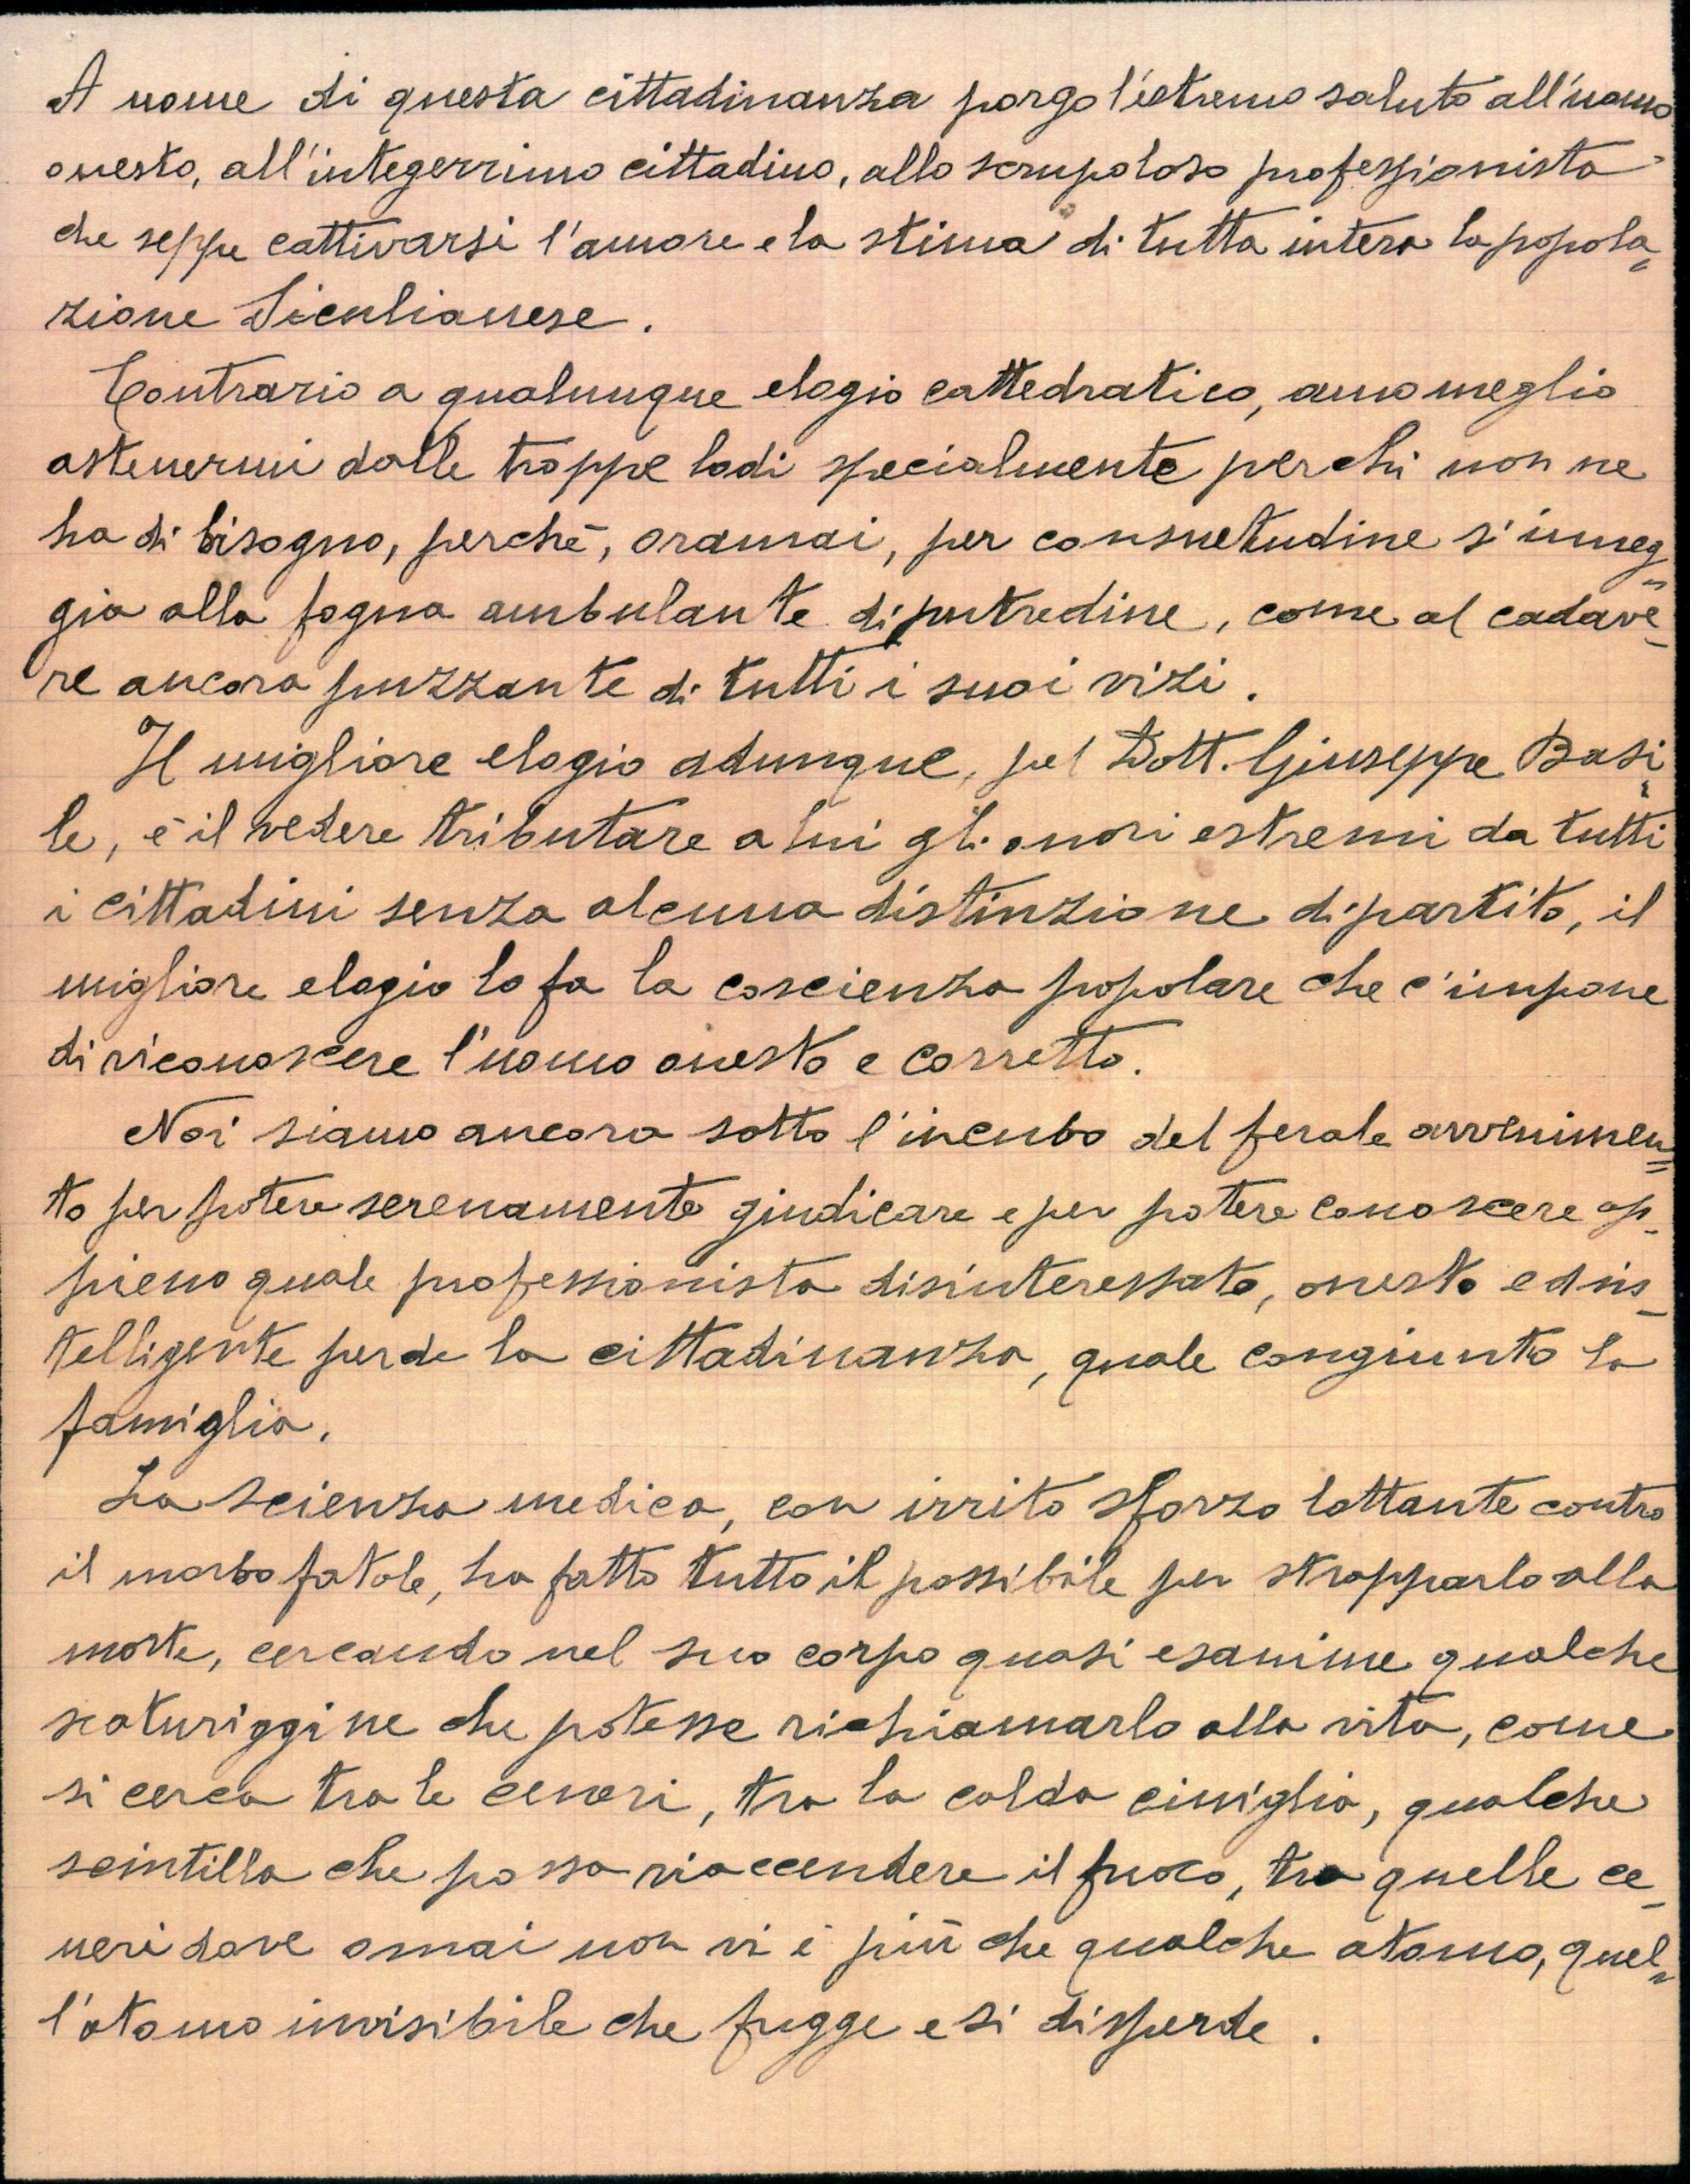 A nome di questa cittadinanza porgo l'estremo saluto all'uomo
onesto, all'integerrimo cittadino, allo scrupoloso professionista
che seppe cattivarsi l'amore e la stima di tutta intera la popola=
zione Siculianese.
Contrario a qualunque elogio cattedratico, amo meglio
astenermi dalle troppe lodi specialmente per chi non ne
ha di bisogno, perchè, oramai, per consuetudine s'inneg=
gia alla fogna ambulante di putredine, come al cadave-
re ancora puzzante di tutti i suoi vizi.
Il migliore elogio adunque, pel Dott. Giuseppe Basi=
le, è il vedere tributare a lui gli onori estremi da tutti
i cittadini senza alcuna distinzione di partito, il
migliore elogio lo fa la coscienza popolare che c'impone
di riconoscere l'uomo onesto e corretto.
Noi siamo ancora sotto l'incubo del ferale avvenimen=
to per potere serenamente giudicare e per potere conoscere ap-
pieno quale professionista disinteressato, onesto ed in-
telligente perde la cittadinanza, quale congiunto la
famiglia.
La scienza medica, con irrito sforzo lottante contro
il morbo fatale, ha fatto tutto il possibile per strapparlo alla
morte, cercando nel suo corpo quasi esanime qualche
scaturiggine che potesse richiamarlo alla vita, come
si cerca tra le ceneri, tra la calda ciniglia, qualche
scintilla che possa riaccendere il fuoco, tra quelle ce-
neri dove ormai non vi è più che qualche atomo, quel=
l'atomo invisibile che fugge e si disperde.